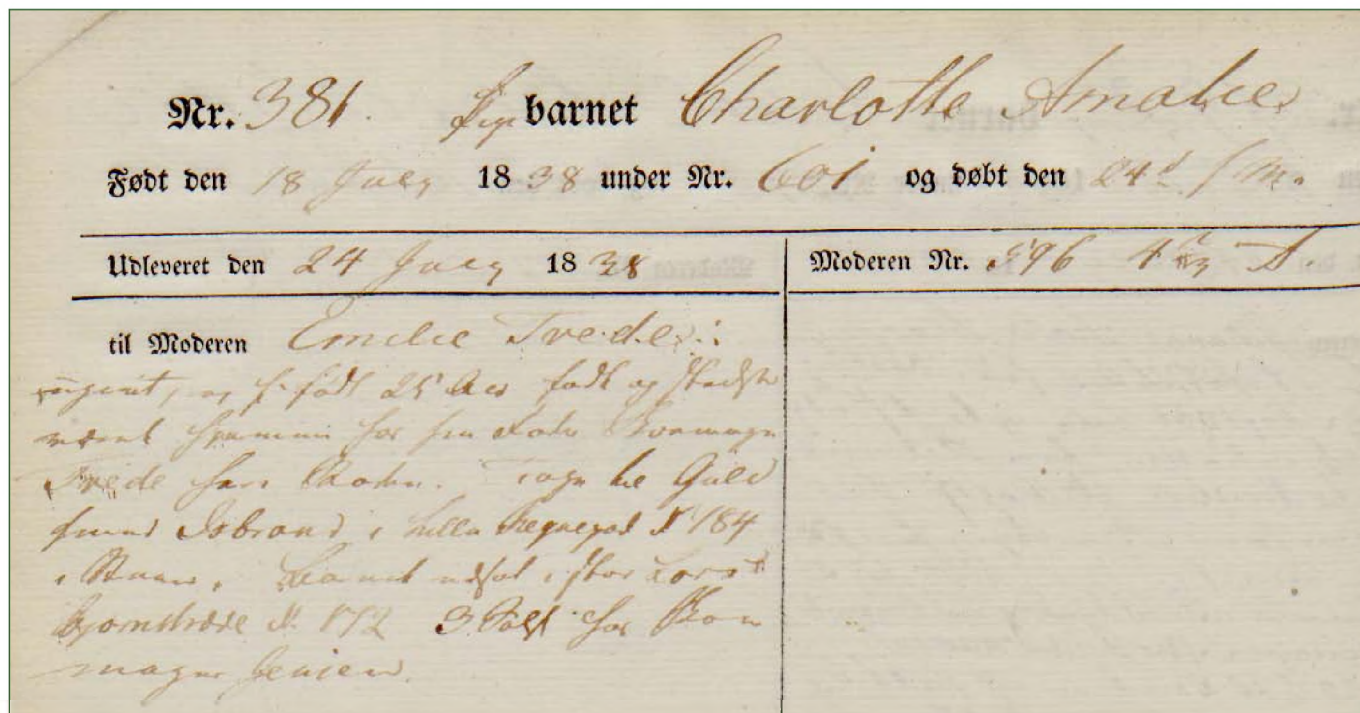 Nr. 381. Pige barnet Charlotte Amalie
Født den 18 July 1838 under Nr. 601 og døbt den 24d s. M.
Udleveret den 24 July 1838
Moderen Nr. 596
til Moderen Emilie Trede:
ugivt, 25 Aar født og
for Skomager
Trede her i Guld
smed Isbrand, Lille Regnegad No 184
i Stuen. Barnet udsat i Store Lars
bjørnstræde No 172 3 Sal hos Skom
mager Jensen.